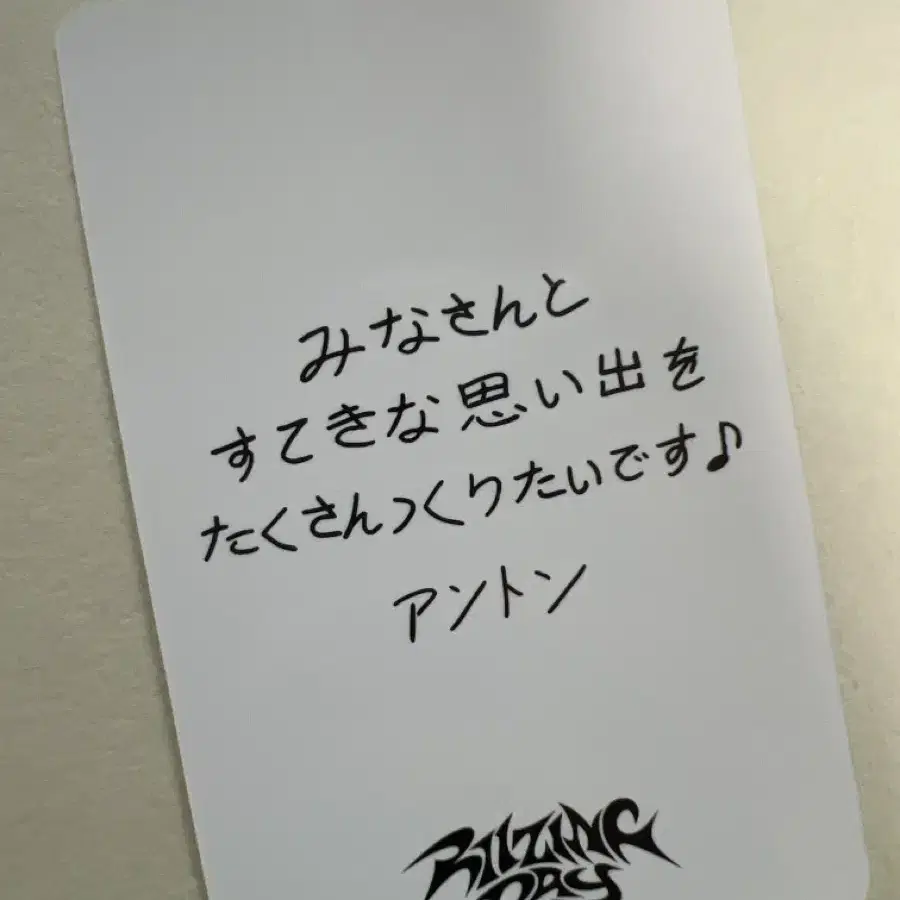 みなさんと
すてきな思い出を
たくさんつくりたいです♪
アントン
RIIZING
DAY